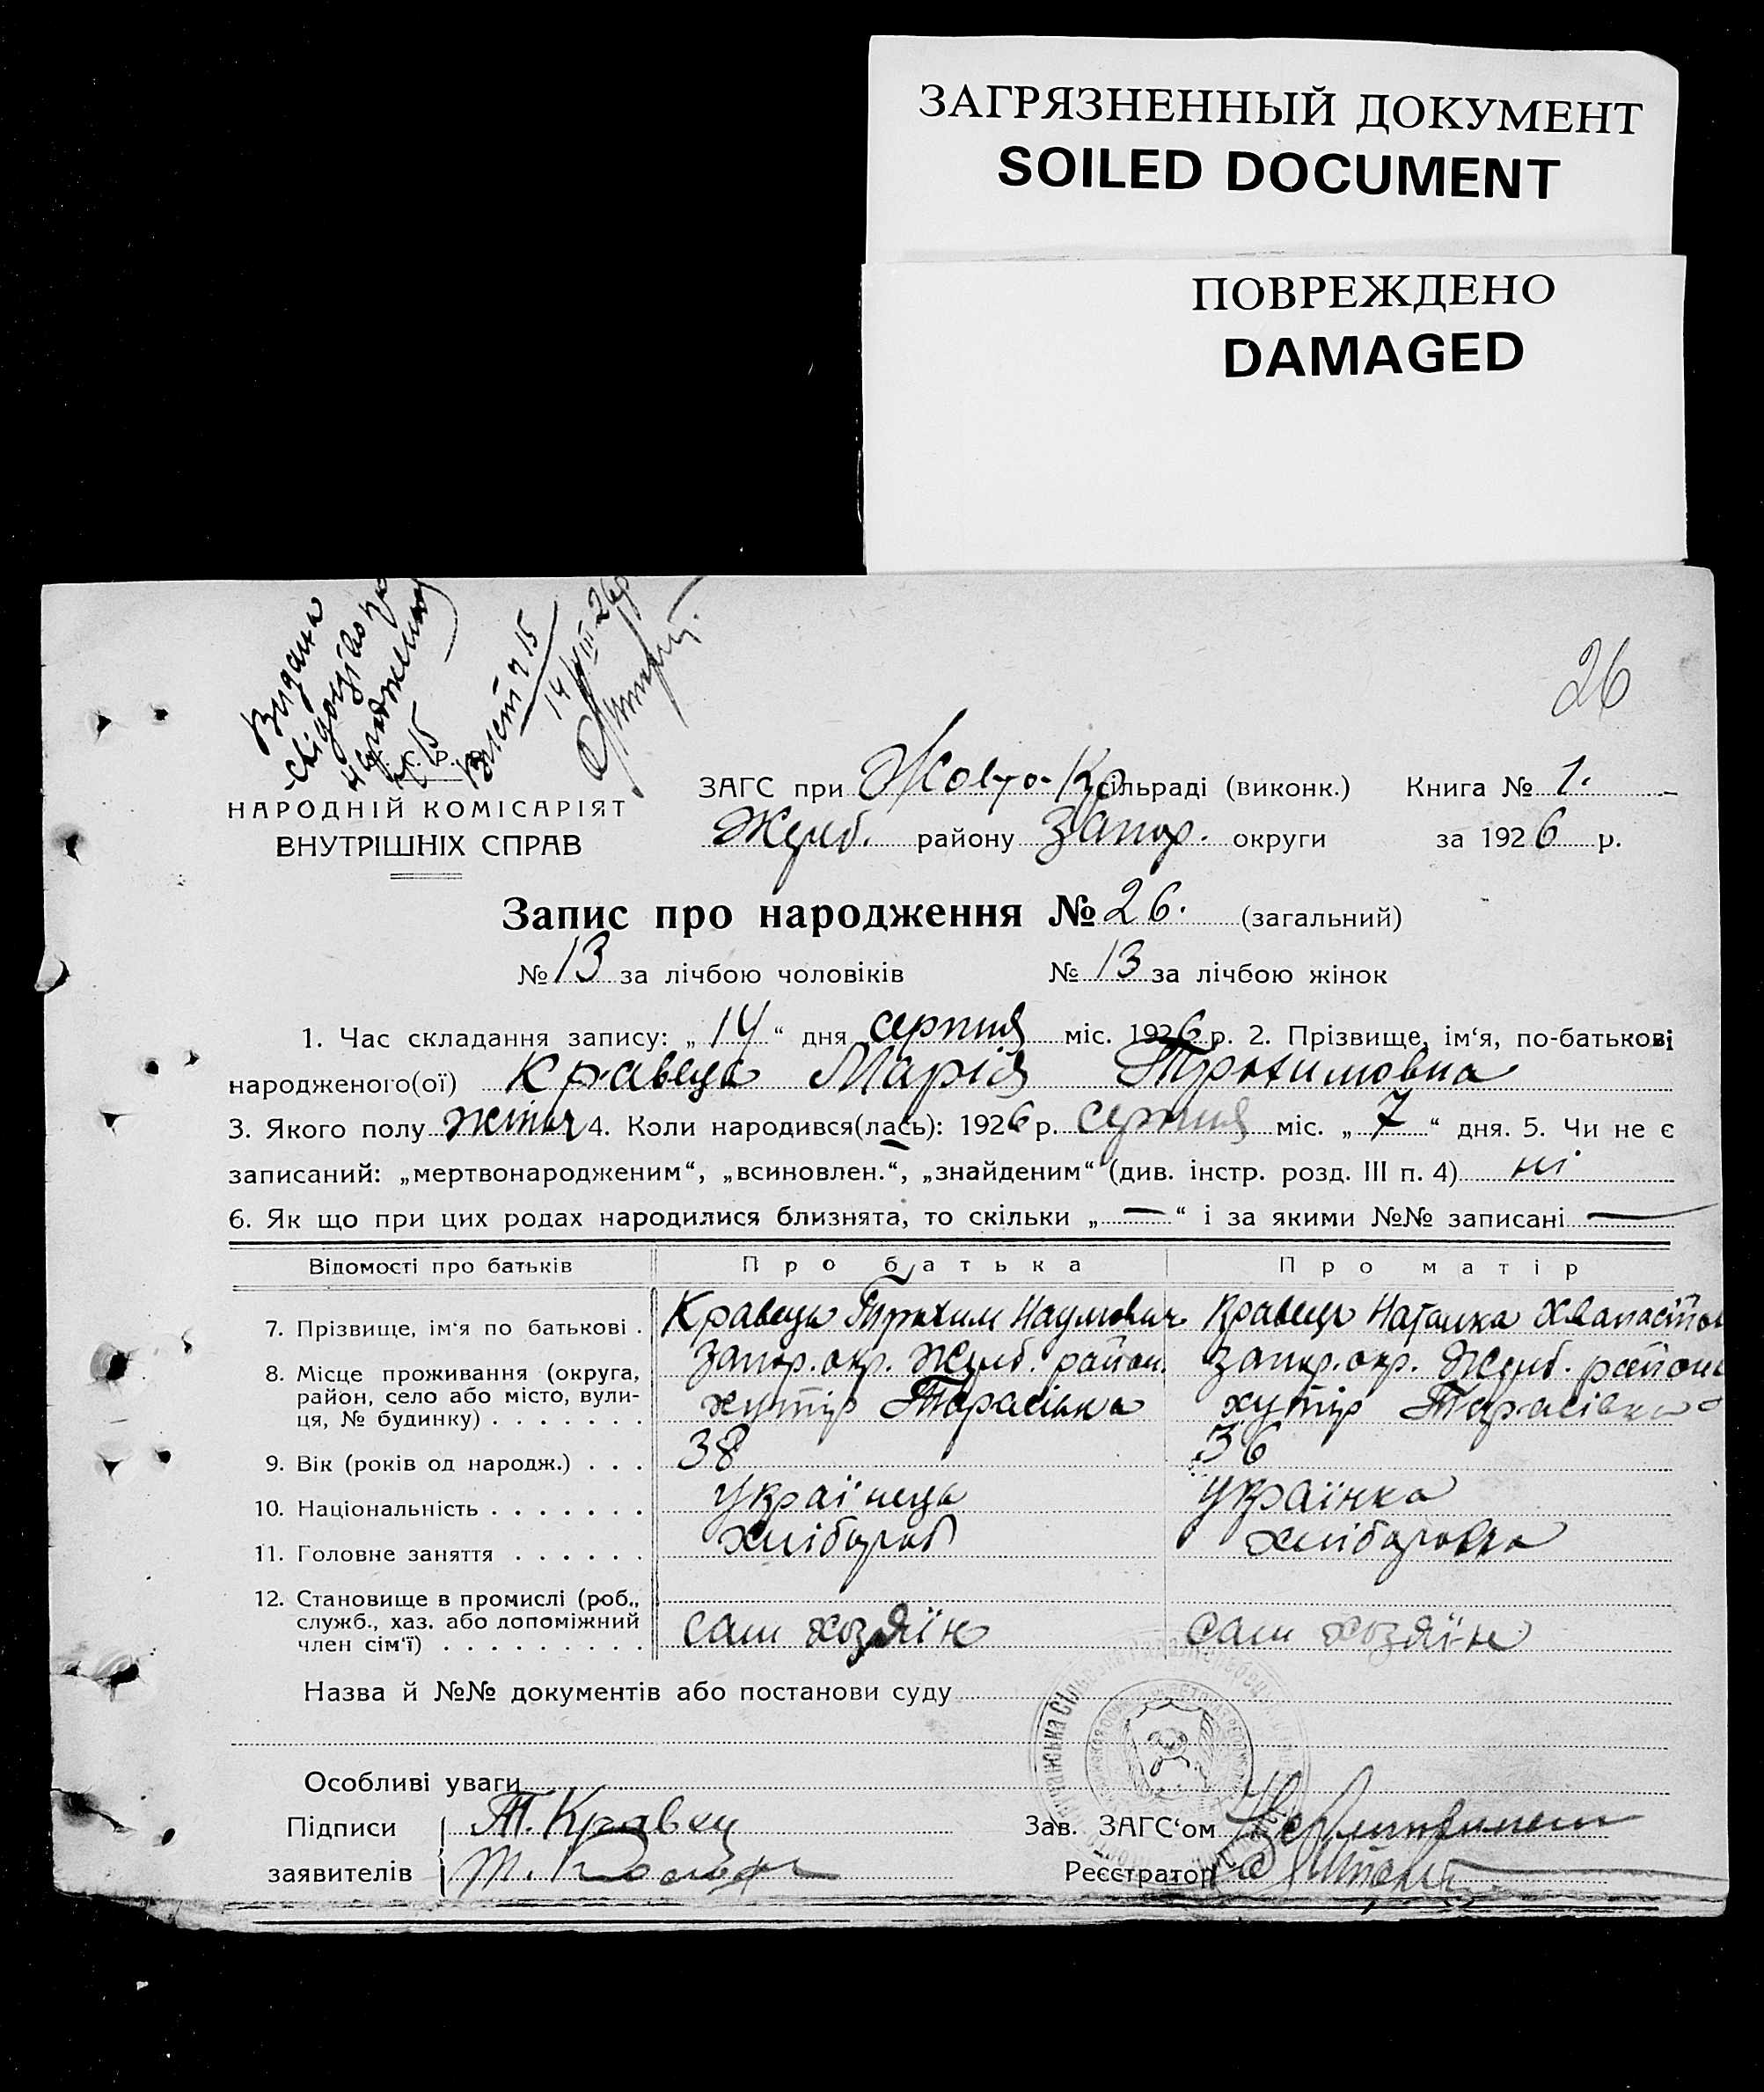 ЗАГРЯЗНЕННЫЙ ДОКУМЕНТ
SOILED DOCUMENT
ПОВРЕЖДЕНО
DAMAGED
26
Видана
свідоцтво про
народження
№ 15
НАРОДНІЙ КОМІСАРІЯТ
ВНУТРІШНІХ СПРАВ
ЗАГС при Жовто-Кр. сільраді (виконк.) Книга № 1.
Жереб. району Запор. округи за 1926 р.
Запис про народження № 26. (загальний)
№ 13 за лічбою чоловіків № 13 за лічбою жінок
1. Час складання запису: „14“ дня серпня міс. 1926 р. 2. Прізвище, ім‘я, по-батькові
народженого(ої) Кравець Марія Трохимовна
3. Якого полу жіноч 4. Коли народився(лась): 1926 р. серпня міс. „7“ дня. 5. Чи не є
записаний: „мертвонародженим“, „всиновлен.“, „знайденим“ (див. інстр. розд. III п. 4) ні
6. Як що при цих родах народилися близнята, то скільки „—“ і за якими №№ записані —
Відомості про батьків Про батька Про матір
7. Прізвище, ім‘я по батькові . Кравець Трохим Наумович Кравець Наталка
8. Місце проживання (округа, Запор. окр. Жереб. район. Запор. окр. Жереб. район
район, село або місто, вули- хутір Тарасівка хутір Тарасівка
ця, № будинку) . . . . . . .
9. Вік (років од народж.) . . . 38 36
10. Національність . . . . . . . Українець Українка
11. Головне заняття . . . . . . хлібороб хліборобка
12. Становище в промислі (роб.,
служб., хаз. або допоміжний
член сім‘ї) . . . . . . . . . сам хозяїн сам хозяїн
Назва й №№ документів або постанови суду
Особливі уваги
Підписи Т. Кравец Зав. ЗАГС‘ом
заявителів Реєстратор